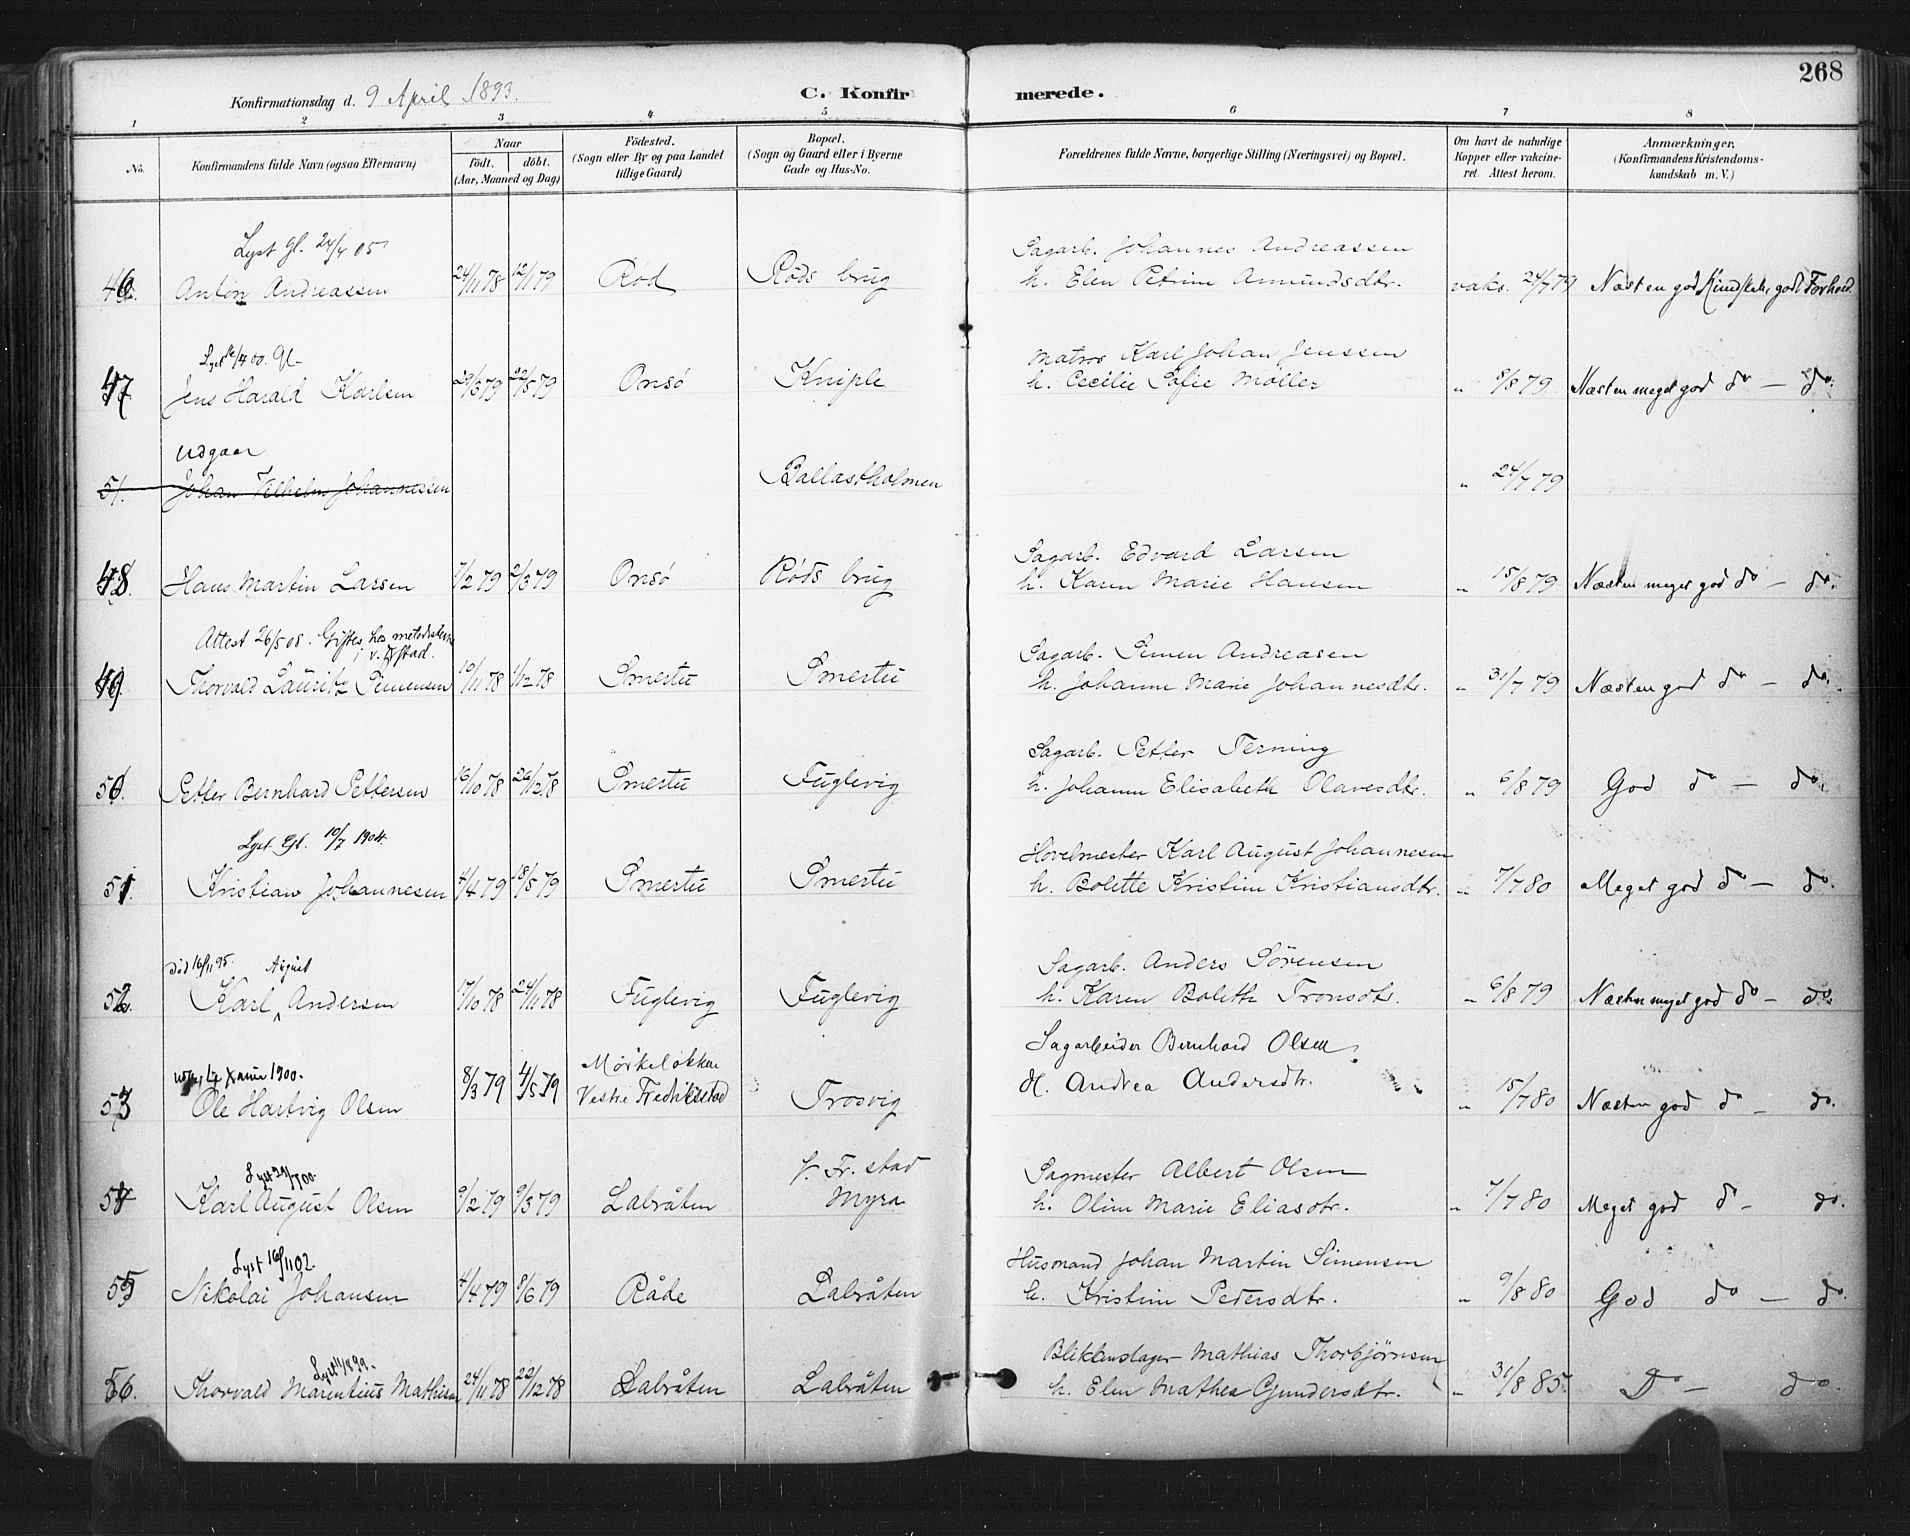 268
Konfirmationsdag d. 9 April 1893.
C. Konfirmerede.
1 2 3 4 5 6 7 8
No.
Konfirmandens fulde Navn (ogsaa Efternavn)
Naar
født. døbt.
(Aar, Maaned og Dag)
Födested.
(Sogn eller By og paa Landet
tillige Gaard)
Bopæl.
(Sogn og Gaard eller i Byerne
Gade og Hus-No.
Forældrenes fulde Navne, borgerlige Stilling (Næringsvei) og Bopæl.
Om havt de naturlige
Kopper eller vakcine-
ret. Attest herom.
Anmærkninger,
(Konfirmandens Kristendoms-
kundskab m. V.)
Lyst Gl. 24/4 05
Sagarb. Johannes Andreassen
46. Anton Andreassen 24/11 78 12/1 79 Rød Røds brug h. Elen Petrine Amundsdtr. vaks. 24/7 79 Næsten god Kundskab, godt Forhold.
Lyst 16/4 00. Gl-
Matros Karl Johan Jenssen
47 Jens Harald Karlsen 29/3 79 22/5 79 Onsö Kniple h. Cecilie Sofie Møller " 8/8 79 Næsten meget god do — do.
Udgaar
51. Johan Vilhelm Johannessen Ballastholmen " 24/7 79
Sagarb. Edvard Larsen
48. Hans Martin Larsen 7/2 79 2/3 79 Onsö Røds brug h. Karen Marie Hansen " 15/8 79 Næsten meget god do — do.
Attest 26/5 08. Giftes hos metodisterne
i v. Fstad.
Sagarb. Simen Andreasen
49 Thorvald Lauritz Simensen 10/11 78 1/12 78 Smertu Smertu h. Johanne Marie Johannesdtr. " 31/7 79 Næsten god do — do.
Sagarb. Petter Terning
50. Petter Bernhard Pettersen 16/10 78 26/12 78 Smertu Fuglevig h. Johanne Elisabeth Olavesdtr. " 6/8 79 God do — do.
Lyst Gl. 10/7 1904.
Høvelmester Karl August Johannesen
51. Kristian Johannesen 4/4 79 18/5 79 Smertu Smertu h. Bolette Kristine Kristiansdtr. " 7/7 80 Meget god do — do.
død 16/11 95. August
Sagarb. Anders Sørensen
52. Karl Andersen 17/10 78 24/11 78 Fuglevig Fuglevig h. Karen Bolette Tronsdtr. " 6/8 79 Næsten meget god do — do.
1900.
Sagarbeider Bernhard Olsen
53 Ole Hartvig Olsen 8/3 79 4/5 79 Mørkeløkken
Vestre Fredrikstad Trosvig H. Andrea Andersdtr. " 15/7 80 Næsten god do — do.
Lyst 29/7 00.
V. Fr. stad
Sagmester Albert Olsen
54 Karl August Olsen 9/2 79 9/3 79 Labråten Myra h. Oline Marie Eliasdtr. " 7/7 80 Meget god do — do.
Lyst 16/11 02.
Husmand Johan Martin Simensen
55 Nikolai Johansen 4/4 79 8/6 79 Råde Labråten h. Kristine Pedersdtr. " 9/8 80 God do — do.
Lyst 11/8 99.
Blikkenslager Mathias Thorbjørnsen
56. Thorvald Marentius Mathisen 24/11 78 22/12 78 Labråten Labråten h. Elen Mathea Gundersdtr. " 31/8 85 Do — do.